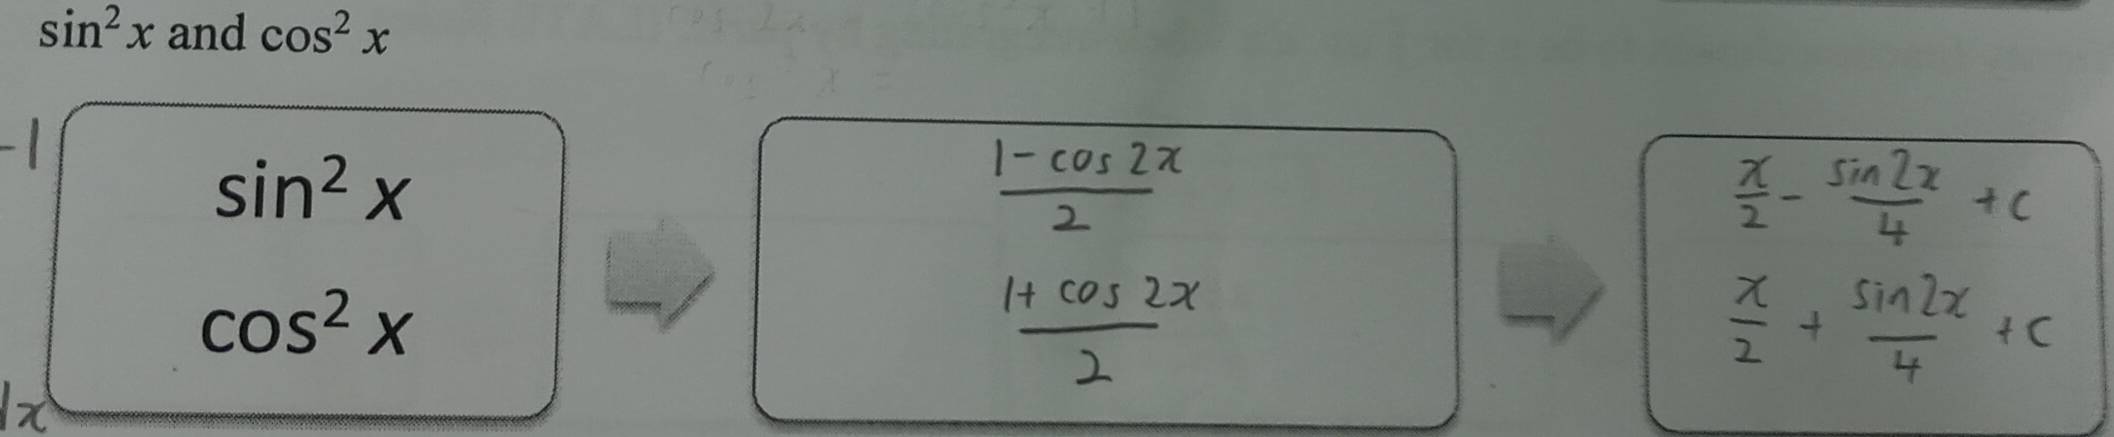 sin² x and cos² x
-1
sin² x
cos² x
x
1 - cos 2x / 2
1 + cos 2x / 2
x/2 - sin 2x / 4 + c
x/2 + sin 2x / 4 + c